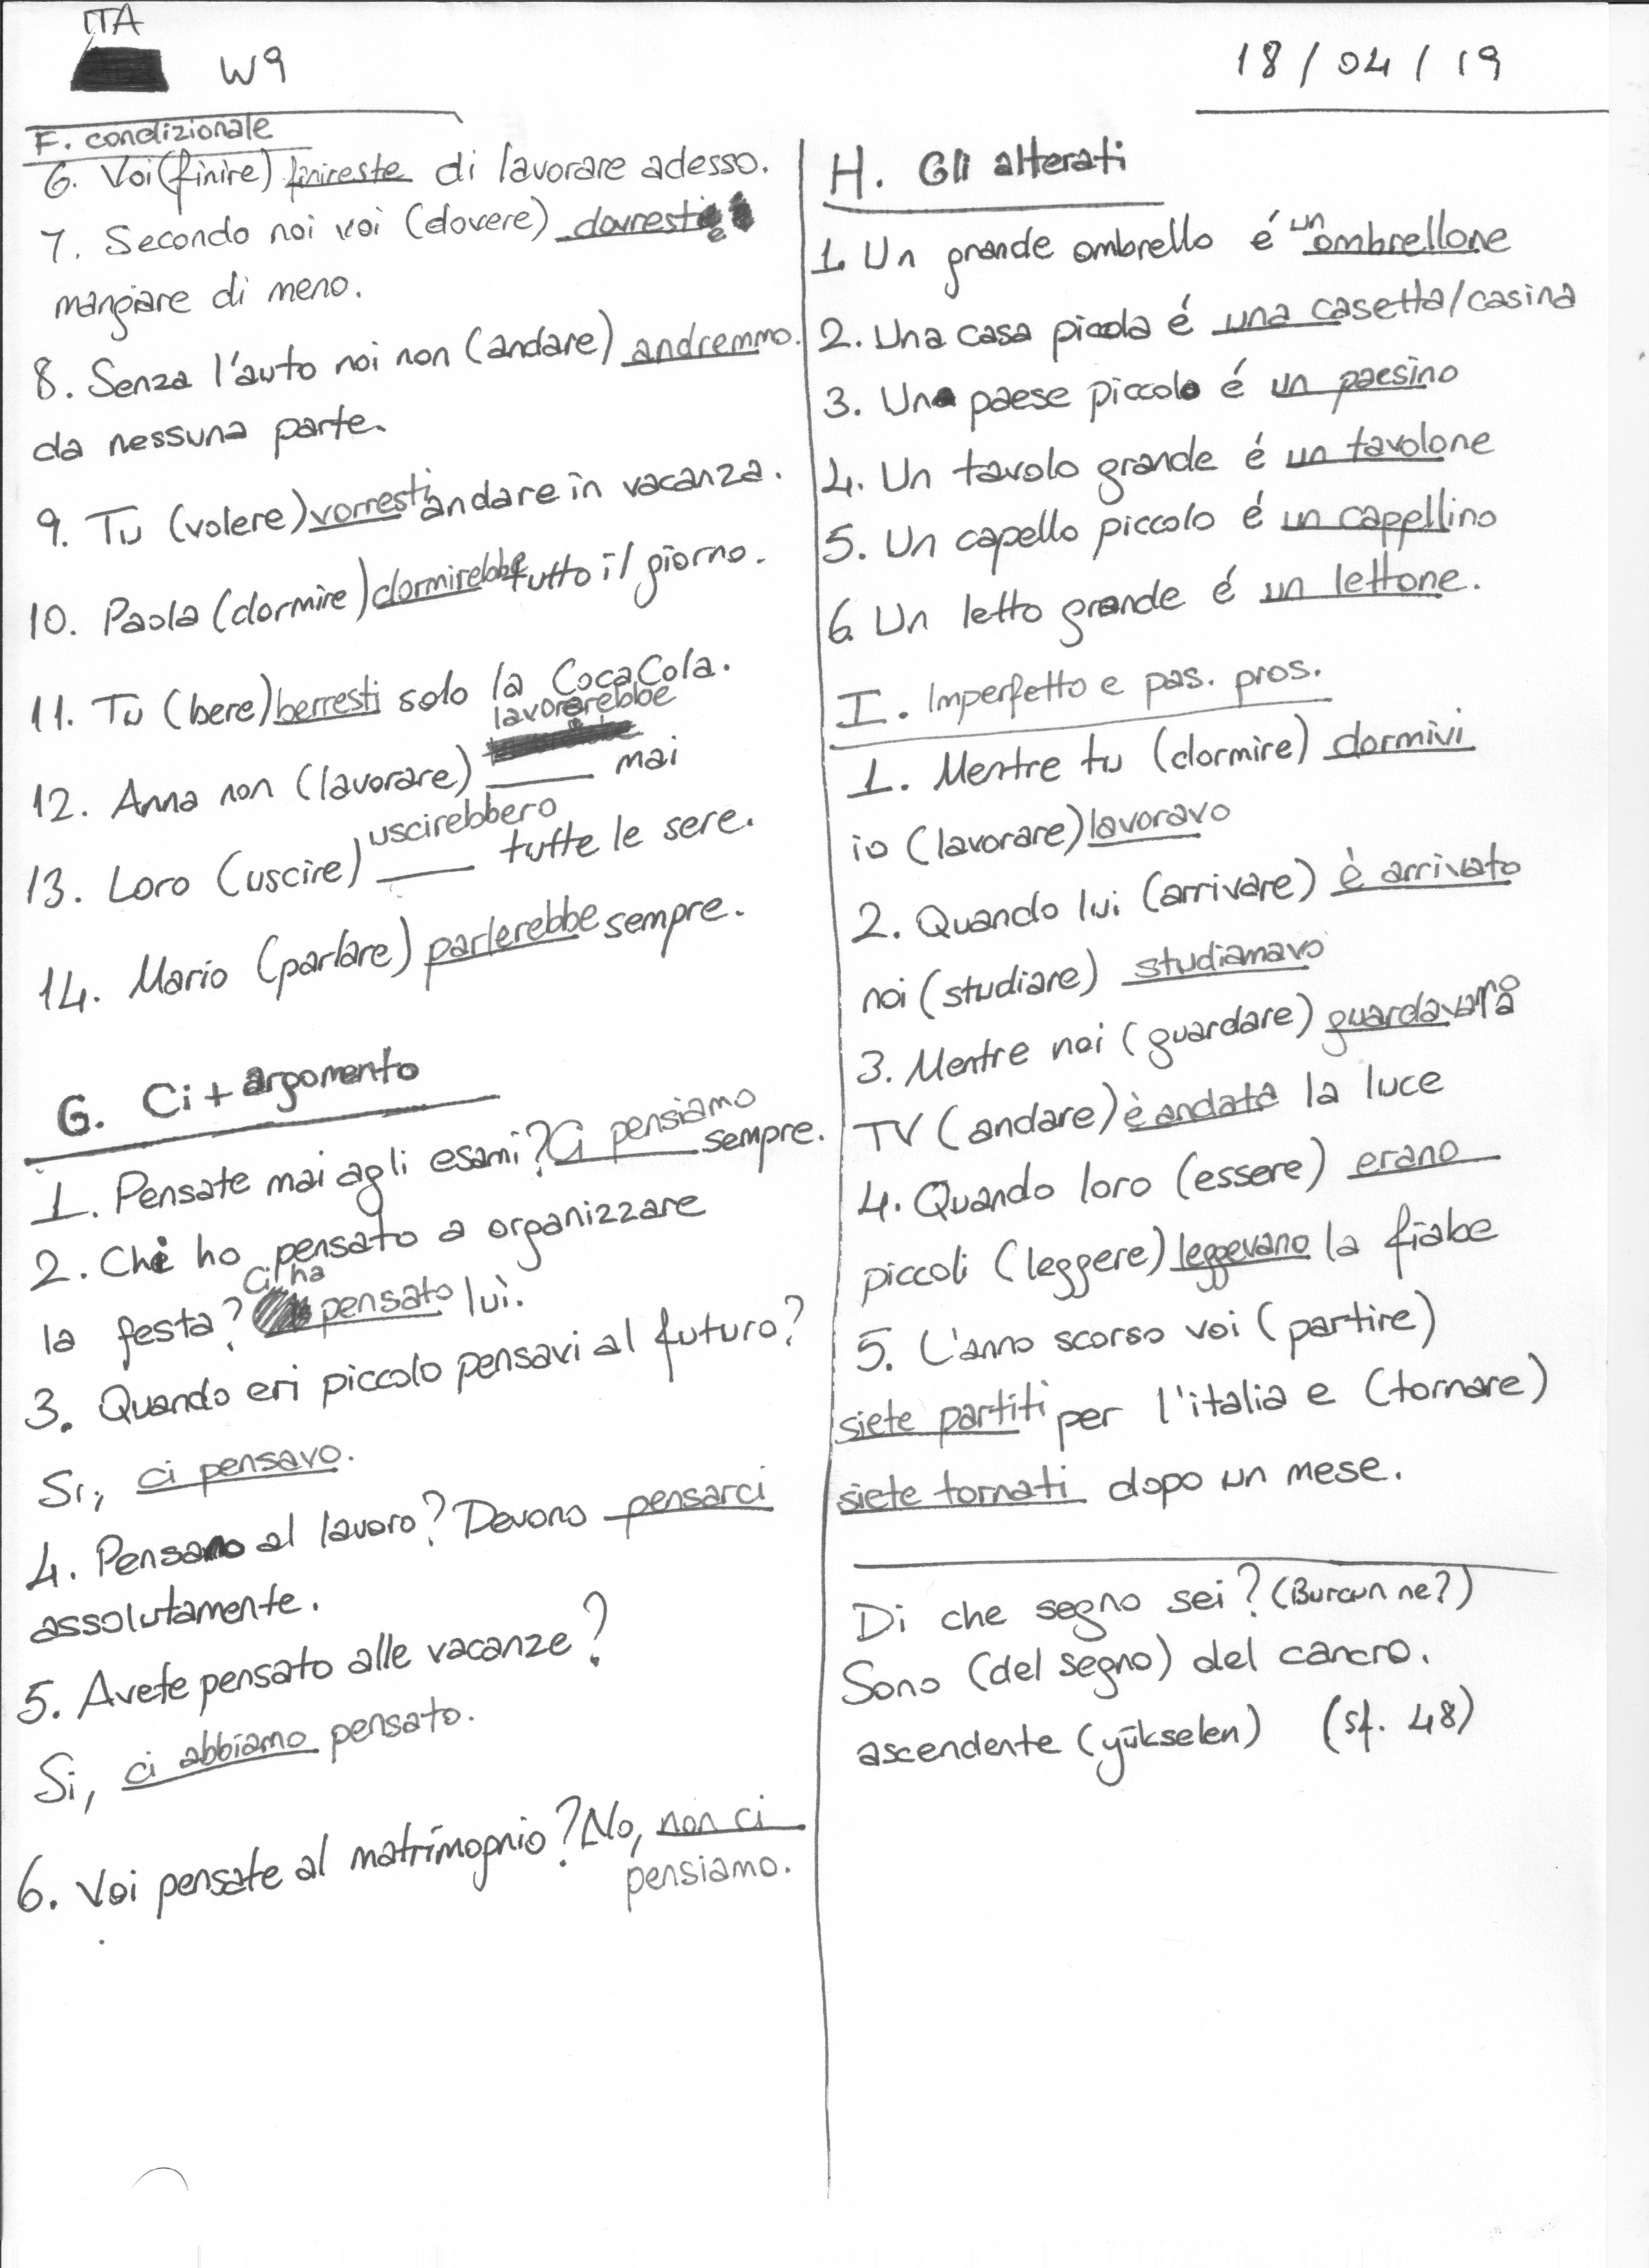 ITA
W9
18/04/19
F. condizionale
6. Voi (finire) finireste di lavorare adesso.
7. Secondo noi voi (dovere) dovreste
mangiare di meno.
8. Senza l'auto noi non (andare) andremmo.
da nessuna parte.
9. Tu (volere) vorresti andare in vacanza.
10. Paola (dormire) dormirebbe tutto il giorno.
11. Tu (bere) berresti solo la CocaCola.
lavorerebbe
12. Anna non (lavorare) ____ mai
uscirebbero
13. Loro (uscire) ____ tutte le sere.
14. Mario (parlare) parlerebbe sempre.
G. Ci + argomento
1. Pensate mai agli esami? Ci pensiamo sempre.
2. Chi ho pensato a organizzare
ci ha
la festa? pensato lui.
3. Quando eri piccolo pensavi al futuro?
Si, ci pensavo.
4. Pensano al lavoro? Devono pensarci
assolutamente.
5. Avete pensato alle vacanze?
Si, ci abbiamo pensato.
6. Voi pensate al matrimognio? No, non ci
pensiamo.
H. Gli alterati
1. Un grande ombrello é un ombrellone
2. Una casa picola é una casetta/casina
3. Un paese piccolo é un paesino
4. Un tavolo grande é un tavolone
5. Un capello piccolo é un capellino
6. Un letto grande é un lettone.
I. Imperfetto e pas. pros.
1. Mentre tu (dormire) dormivi
io (lavorare) lavoravo
2. Quando lui (arrivare) è arrivato
noi (studiare) studiamavo
3. Mentre noi (guardare)
TV (andare) è andata la luce
4. Quando loro (essere) erano
piccoli (leggere) leggevano la fiabe
5. L'anno scorso voi (partire)
siete partiti per l'italia e (tornare)
siete tornati dopo un mese.
Di che segno sei? (Burcun ne?)
Sono (del segno) del cancro.
ascendente (yükselen) (sf. 48)